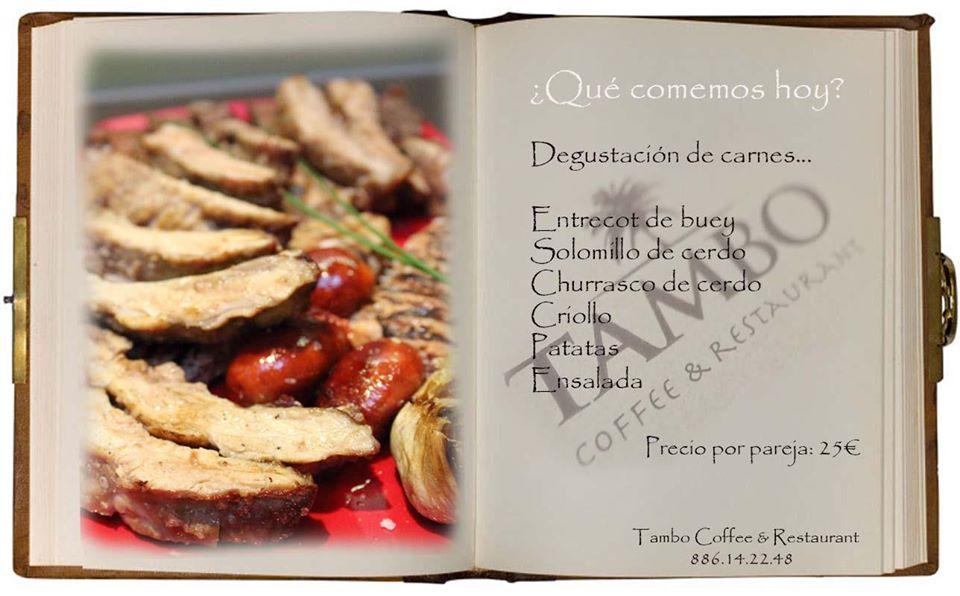 ¿Qué comemos hoy?
Degustación de carnes...
Entrecot de buey
Solomillo de cerdo
Churrasco de cerdo
Criollo
Patatas
Ensalada
TAMBO
COFFEE & RESTAURANT
Precio por pareja: 25€
Tambo Coffee & Restaurant
886.14.22.48